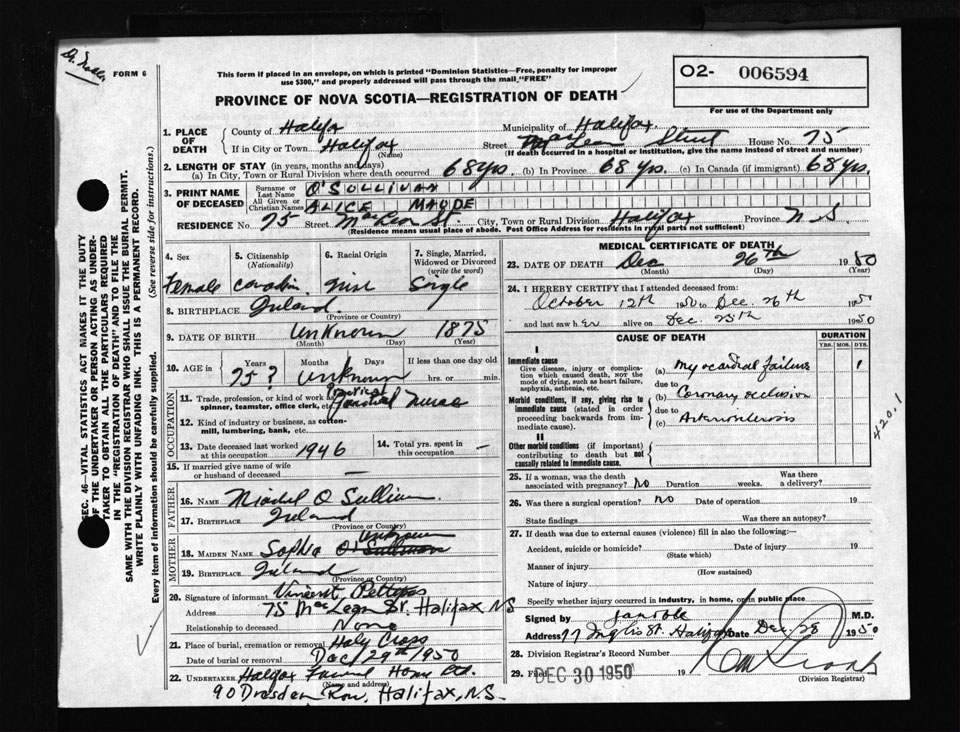 FORM 6
This form if placed in an envelope, on which is printed "Dominion Statistics—Free, penalty for improper
use $300," and properly addressed will pass through the mail "FREE"
PROVINCE OF NOVA SCOTIA—REGISTRATION OF DEATH
O2- 006594
For use of the Department only
SEC. 46—VITAL STATISTICS ACT MAKES IT THE DUTY
OF THE UNDERTAKER OR PERSON ACTING AS UNDER-
TAKER TO OBTAIN ALL THE PARTICULARS REQUIRED
IN THE "REGISTRATION OF DEATH" AND TO FILE THE
SAME WITH THE DIVISION REGISTRAR WHO SHALL ISSUE THE BURIAL PERMIT.
WRITE PLAINLY WITH UNFADING INK. THIS IS A PERMANENT RECORD.
Every item of information should be carefully supplied. (See reverse side for instructions.)
1. PLACE OF DEATH County of Halifax Municipality of Halifax
If in City or Town Halifax (Name) Street MacLean Street House No. 75
(If death occurred in a hospital or institution, give the name instead of street and number)
2. LENGTH OF STAY (in years, months and days)
(a) In City, Town or Rural Division where death occurred 68 yrs. (b) In Province 68 yrs. (c) In Canada (if immigrant) 68 yrs.
3. PRINT NAME OF DECEASED Surname or Last Name O'SULLIVAN
All Given or Christian Names ALICE MAUDE
RESIDENCE No. 75 Street MacLean St. City, Town or Rural Division Halifax Province N.S.
(Residence means usual place of abode. Post Office Address for residents in rural parts not sufficient)
4. Sex Female
5. Citizenship (Nationality) Canadian
6. Racial Origin Irish
7. Single, Married, Widowed or Divorced (write the word) Single
8. BIRTHPLACE Ireland (Province or Country)
9. DATE OF BIRTH unknown 1875
(Month) (Day) (Year)
10. AGE in Years Months Days If less than one day old
75? unknown hrs. or min.
OCCUPATION
11. Trade, profession, or kind of work as spinner, teamster, office clerk, etc. Practical Nurse
12. Kind of industry or business, as cotton-mill, lumbering, bank, etc.
13. Date deceased last worked at this occupation 1946
14. Total yrs. spent in this occupation —
15. If married give name of wife or husband of deceased —
FATHER
16. NAME Michel O Sullivan
17. BIRTHPLACE Ireland (Province or Country)
MOTHER
18. MAIDEN NAME Sophia O'Sullivan Unknown
19. BIRTHPLACE Ireland (Province or Country)
20. Signature of informant Vincent Pettipas
Address 75 MacLean St. Halifax, NS
Relationship to deceased None
21. Place of burial, cremation or removal Holy Cross
Date of burial or removal Dec/29th 1950
22. UNDERTAKER Halifax Funeral Home Ltd.
(Name and address)
90 Dresden Row, Halifax, N.S.
MEDICAL CERTIFICATE OF DEATH
23. DATE OF DEATH Dec 26th 1950
(Month) (Day) (Year)
24. I HEREBY CERTIFY that I attended deceased from:
October 12th 1950 to Dec. 26th 1950
and last saw her alive on Dec. 25th 1950
CAUSE OF DEATH
DURATION
YRS. MOS. DYS.
I
Immediate cause
Give disease, injury or complication which caused death, not the mode of dying, such as heart failure, asphyxia, asthenia, etc.
(a) myocardial failure 1
due to
Morbid conditions, if any, giving rise to immediate cause (stated in order proceeding backwards from immediate cause).
(b) Coronary occlusion
due to
(c) Arteriosclerosis
420.1
II
Other morbid conditions (if important) contributing to death but not causally related to immediate cause.
25. If a woman, was the death associated with pregnancy? NO Duration weeks. Was there a delivery?
26. Was there a surgical operation? NO Date of operation 19
State findings Was there an autopsy?
27. If death was due to external causes (violence) fill in also the following:
Accident, suicide or homicide? (State which) Date of injury 19
Manner of injury (How sustained)
Nature of injury
Specify whether injury occurred in industry, in home, or in public place
Signed by M.D.
Address 77 Inglis St. Halifax Date Dec 28 1950
28. Division Registrar's Record Number
29. Filed DEC 30 1950
(Division Registrar)